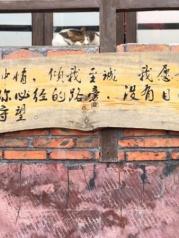 情，倾我至诚 我愿
你必经的路旁，没有目
守望。